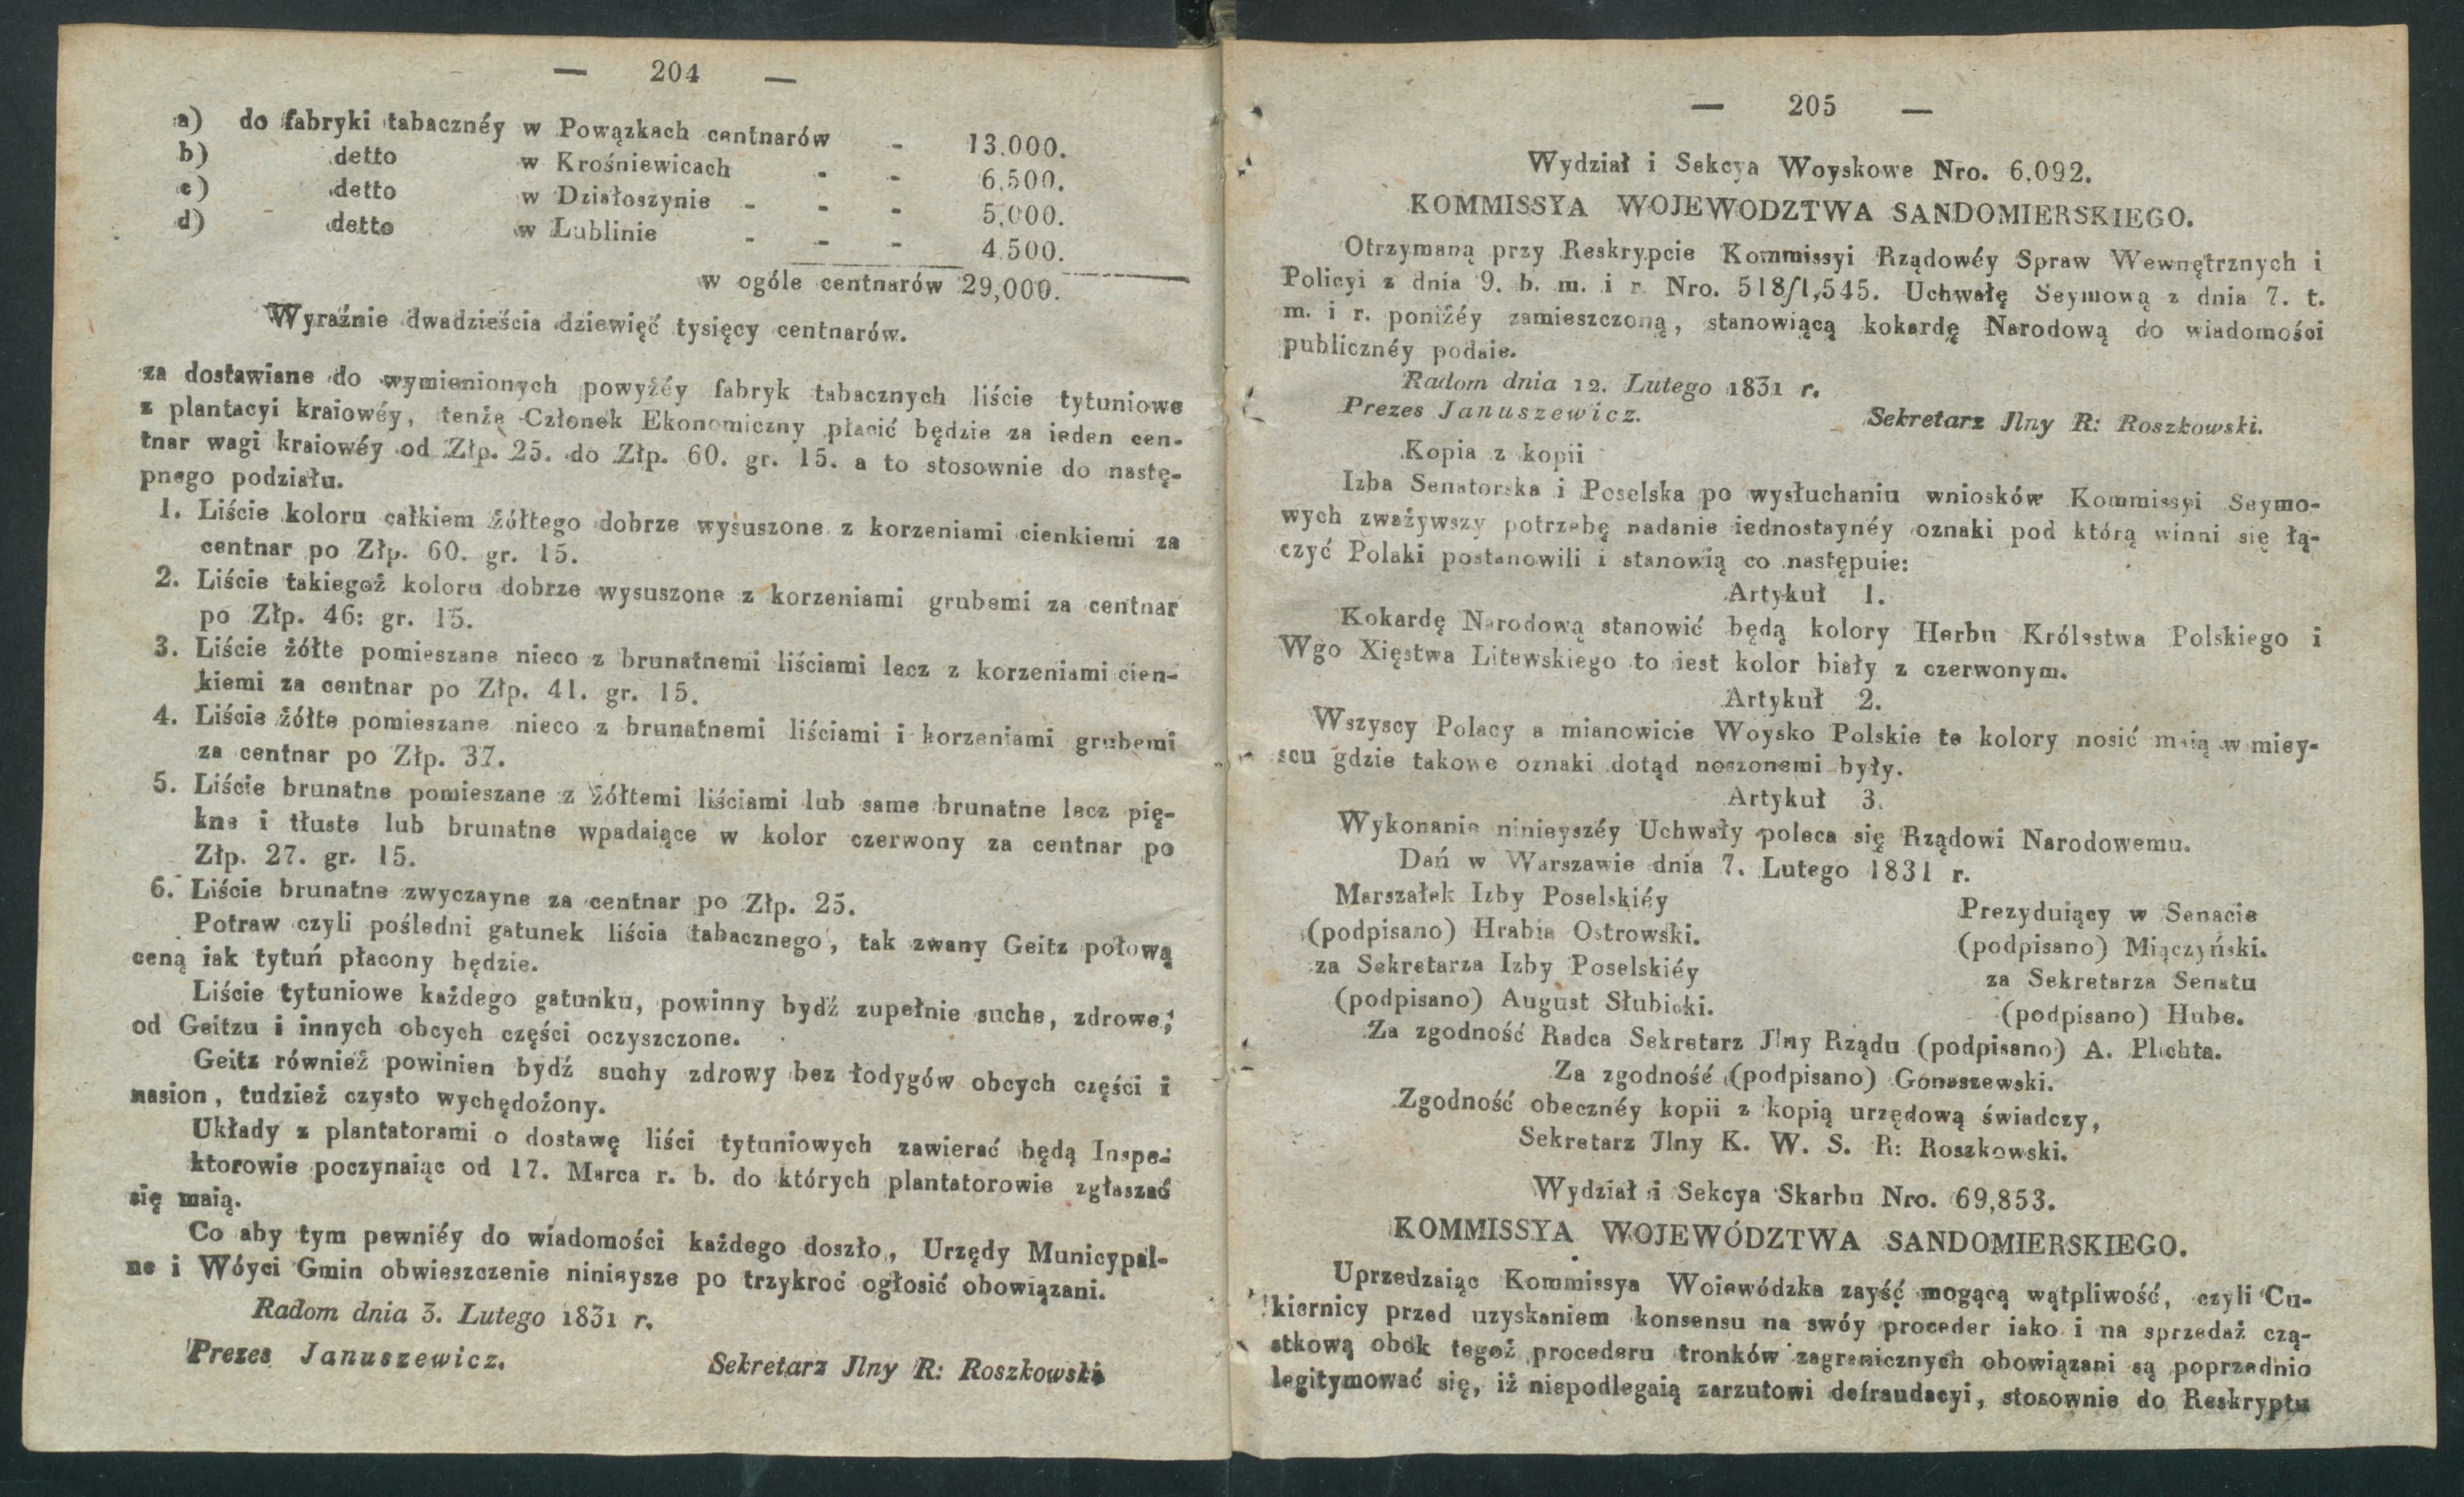 — 204 —
a) do fabryki tabacznéy w Powązkach centnarów - 13.000.
b) detto w Krośniewicach - - 6,500.
c) detto w Działoszynie - - - 5,000.
d) detto w Lublinie - - - 4.500.
w ogóle centnarów 29,000.
Wyraźnie dwadzieścia dziewięć tysięcy centnarów.
za dostawiane do wymienionych powyżéy fabryk tabacznych liście tytuniowe
z plantacyi kraiowéy, tenże Członek Ekonomiczny płacić będzie za ieden cen-
tnar wagi kraiowéy od Złp. 25. do Złp. 60. gr. 15. a to stosownie do nastę-
pnego podziału.
1. Liście koloru całkiem żółtego dobrze wysuszone z korzeniami cienkiemi za
centnar po Złp. 60. gr. 15.
2. Liście takiegoż koloru dobrze wysuszone z korzeniami grubemi za centnar
po Złp. 46: gr. 15.
3. Liście żółte pomieszane nieco z brunatnemi liściami lecz z korzeniami cien-
kiemi za centnar po Złp. 41. gr. 15.
4. Liście żółte pomieszane nieco z brunatnemi liściami i korzeniami grubemi
za centnar po Złp. 37.
5. Liście brunatne pomieszane z żółtemi liściami lub same brunatne lecz pię-
kne i tłuste lub brunatne wpadaiące w kolor czerwony za centnar po
Złp. 27. gr. 15.
6. Liście brunatne zwyczayne za centnar po Złp. 25.
Potraw czyli pośledni gatunek liścia tabacznego, tak zwany Geitz połową
ceną iak tytuń płacony będzie.
Liście tytuniowe każdego gatunku, powinny bydź zupełnie suche, zdrowe,
od Geitzu i innych obcych części oczyszczone.
Geitz również powinien bydź suchy zdrowy bez łodygów obcych części i
nasion, tudzież czysto wychędożony.
Układy z plantatorami o dostawę liści tytuniowych zawierać będą Inspe-
ktorowie poczynaiąc od 17. Marca r. b. do których plantatorowie zgłaszać
się maią.
Co aby tym pewniéy do wiadomości każdego doszło, Urzędy Municypal-
ne i Wóyci Gmin obwieszczenie ninieysze po trzykroć ogłosić obowiązani.
Radom dnia 3. Lutego 1831 r.
Prezes Januszewicz.
Sekretarz Jlny R: Roszkowski
— 205 —
Wydział i Sekcya Woyskowe Nro. 6,092.
KOMMISSYA WOJEWODZTWA SANDOMIERSKIEGO.
Otrzymaną przy Reskrypcie Kommissyi Rządowéy Spraw Wewnętrznych i
Policyi z dnia 9. b. m. i r. Nro. 518/1,545. Uchwałę Seymową z dnia 7. t.
m. i r. poniżéy zamieszczoną, stanowiącą kokardę Narodową do wiadomości
publicznéy podaie.
Radom dnia 12. Lutego 1831 r.
Prezes Januszewicz.
Sekretarz Jlny R: Roszkowski.
Kopia z kopii
Izba Senatorska i Poselska po wysłuchaniu wniosków Kommissyi Seymo-
wych zważywszy potrzebę nadanie iednostaynéy oznaki pod którą winni się łą-
czyć Polaki postanowili i stanowią co następuie:
Artykuł 1.
Kokardę Narodową stanowić będą kolory Herbu Królestwa Polskiego i
Wgo Xięstwa Litewskiego to iest kolor biały z czerwonym.
Artykuł 2.
Wszyscy Polacy a mianowicie Woysko Polskie te kolory nosić maią w miey-
scu gdzie takowe oznaki dotąd noszonemi były.
Artykuł 3.
Wykonanie ninieyszéy Uchwały poleca się Rządowi Narodowemu.
Dań w Warszawie dnia 7. Lutego 1831 r.
Marszałek Izby Poselskiéy
(podpisano) Hrabia Ostrowski.
za Sekretarza Izby Poselskiéy
(podpisano) August Słubicki.
Prezyduiący w Senacie
(podpisano) Miączyński.
za Sekretarza Senatu
(podpisano) Hube.
Za zgodność Radca Sekretarz Jlny Rządu (podpisano) A. Plichta.
Za zgodność (podpisano) Gonaszewski.
Zgodność obecnéy kopii z kopią urzędową świadczy,
Sekretarz Jlny K. W. S. R: Roszkowski.
Wydział i Sekcya Skarbu Nro. 69,853.
KOMMISSYA WOJEWÓDZTWA SANDOMIERSKIEGO.
Uprzedzaiąc Kommissya Woiewódzka zayść mogącą wątpliwość, czyli Cu-
kiernicy przed uzyskaniem konsensu na swóy proceder iako i na sprzedaż czą-
stkową obok tegoż procederu tronków zagranicznych obowiązani są poprzednio
legitymować się, iż niepodlegaią zarzutowi defraudacyi, stosownie do Reskryptu